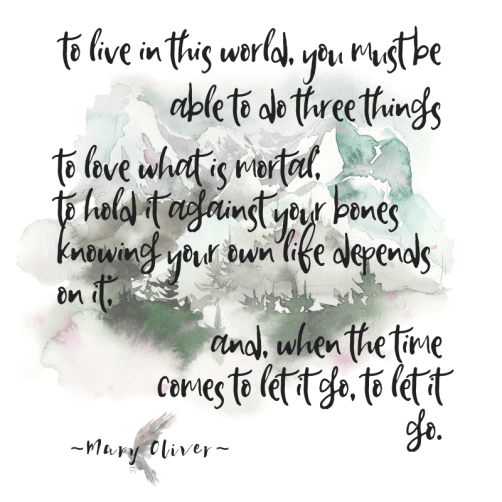 to live in this world, you must be
able to do three things
to love what is mortal,
to hold it against your bones
knowing your own life depends
on it,
and, when the time
comes to let it go, to let it
go.
~Mary Oliver~